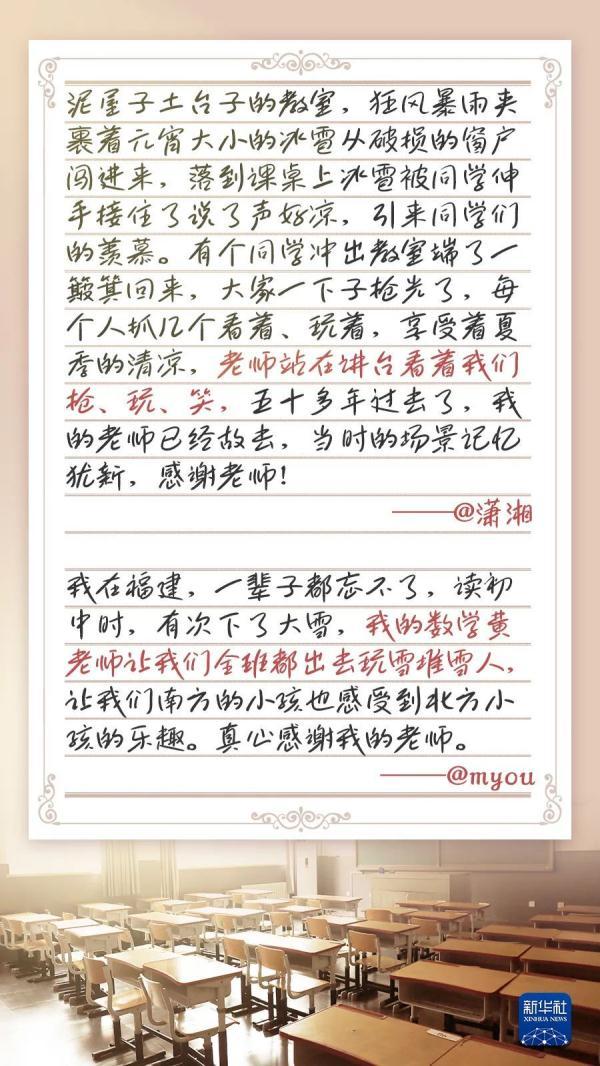 泥屋子土台子的教室，狂风暴雨夹
裹着元宵大小的冰雹从破损的窗户
闯进来，落到课桌上冰雹被同学伸
手接住了说了声好凉，引来同学们
的羡慕。有个同学冲出教室端了一
簸箕回来，大家一下子抢光了，每
个人抓几个看着、玩着，享受着夏
季的清凉，老师站在讲台看着我们
抢、玩、笑，五十多年过去了，我
的老师已经故去，当时的场景记忆
犹新，感谢老师！
——@潇湘
我在福建，一辈子都忘不了，读初
中时，有次下了大雪，我的数学黄
老师让我们全班都出去玩雪堆雪人，
让我们南方的小孩也感受到北方小
孩的乐趣。真心感谢我的老师。
——@myou
新华社
XINHUA NEWS